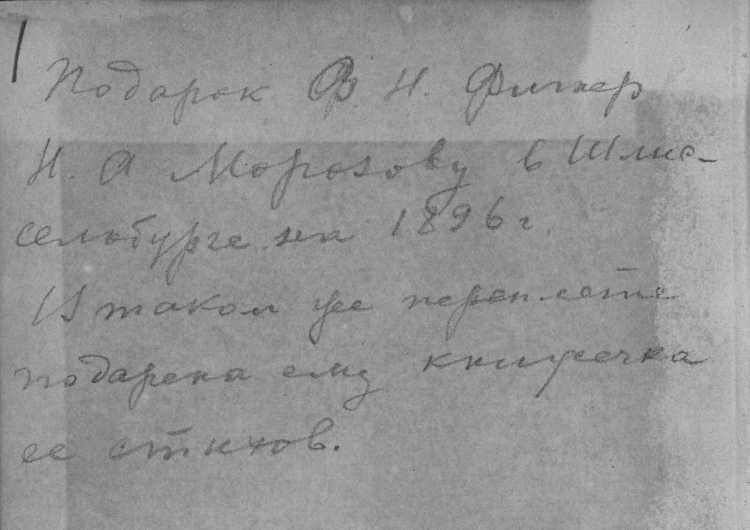 Подарок В. Н. Фигнер
Н. А Морозову в Шлис-
сельбурге на 1896 г.
В таком же переплете
подарена ему книжечка
ее стихов.